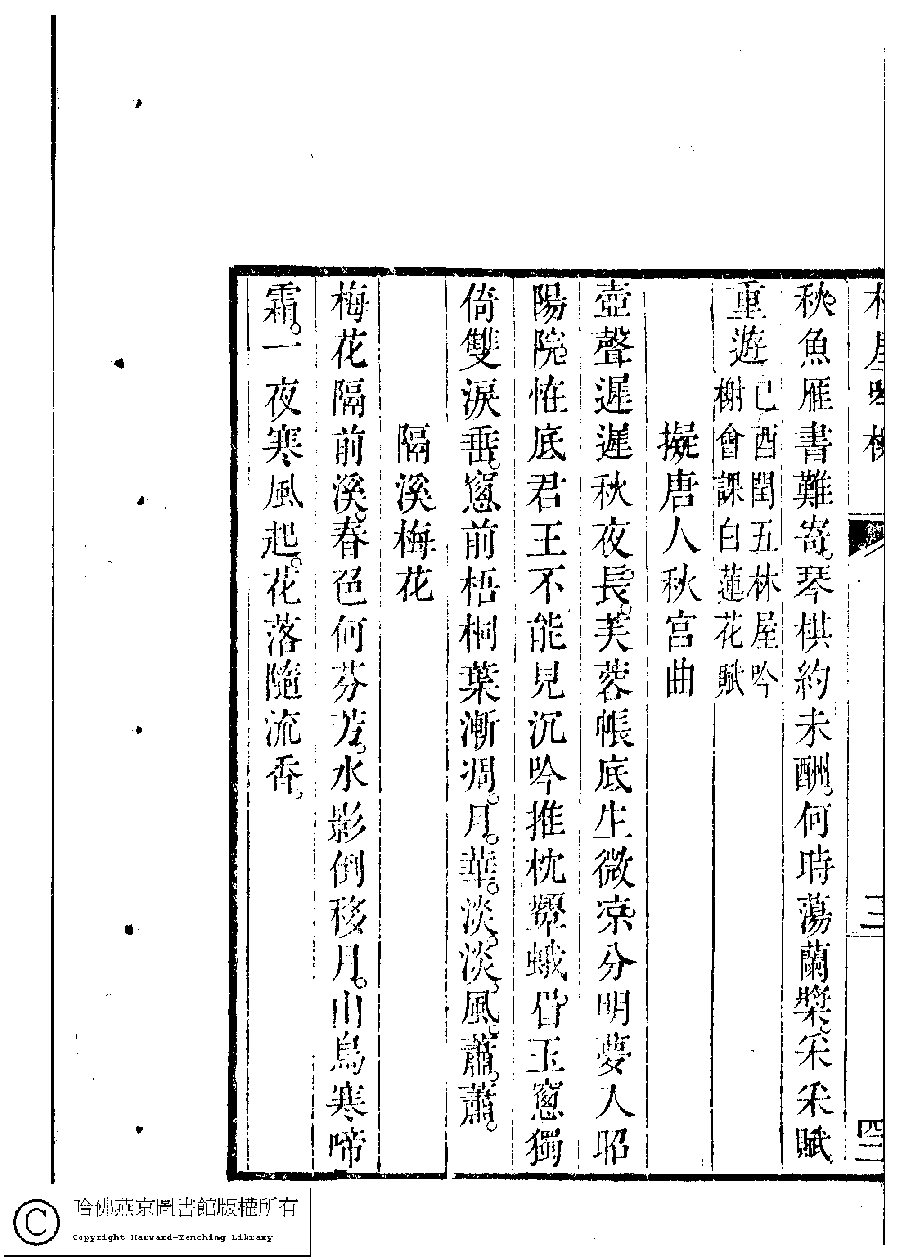 林屋吟榭
三
四
秋魚雁書難寄。琴棋約未酬。何時蕩蘭槳。采采賦
重遊
已酉閏五林屋吟
榭會課白蓮花賦
擬唐人秋宮曲
壺聲遲遲秋夜長。芙蓉帳底生微凉。分明夢入昭
陽院。恠底君王不能見。沉吟推枕顰蛾眉。玉窓獨
倚雙淚垂。窓前梧桐葉漸凋。月。華。淡。淡。風。蕭。蕭。
隔溪梅花
梅花隔前溪。春色何芬芳。水影倒移月。山鳥寒啼
霜。一夜寒風起。花落隨流香。
哈佛燕京圖書館版權所有
Copyright Harvard-Yenching Library